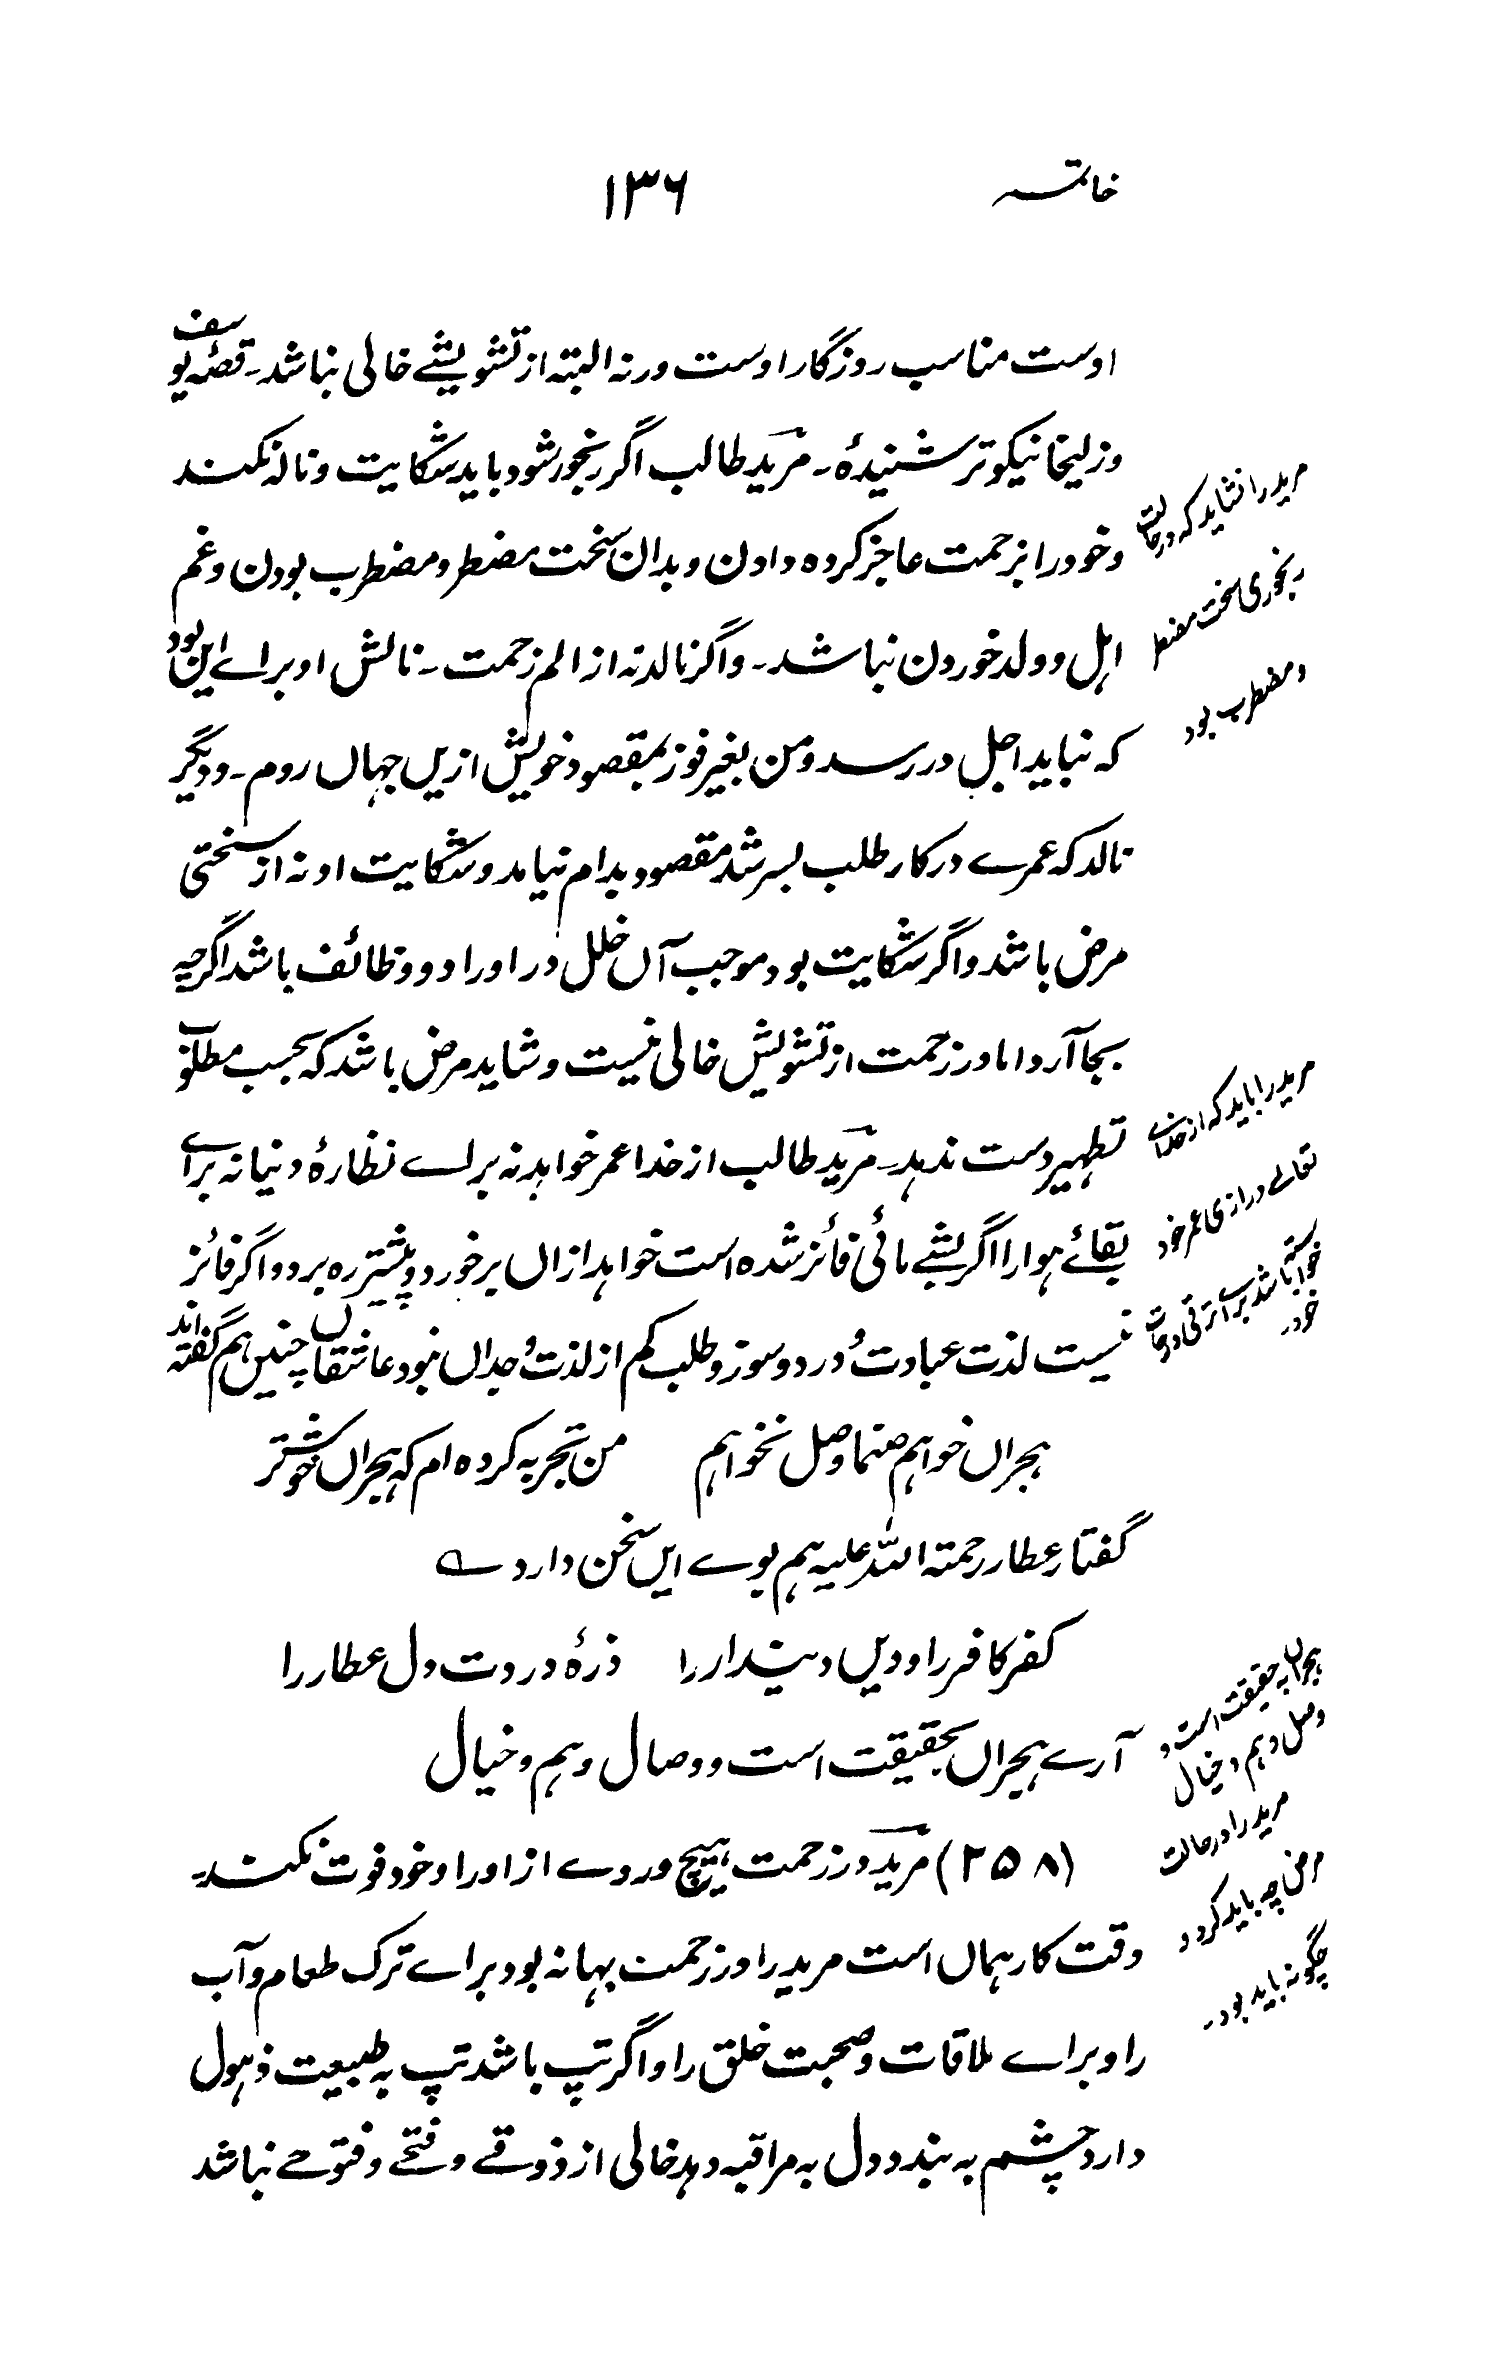 خاتمہ ۱۳۶
اوست مناسب روزگار اوست ورنہ البتہ از تشویشے خالی نباشد۔ قصۂ یوسف
وزلیخا نیکوتر شنیدۂ۔ مرید طالب اگر رنجور شود باید شکایت و نالہ نکند
وخود را بزحمت عاجز کردہ دادن و بدان سخت مضطر و مضطرب بودن و غم
اہل و ولد خوردن نباشد۔ و اگر نالد نہ از الم زحمت۔ نالش او براے این بود
کہ نباید اجل در رسد ومن بغیر فوز بمقصود خویش ازیں جہاں روم۔ ودیگر
نالد کہ عمرے در کار طلب بسر شد مقصود بدام نیامد و شکایت او نہ از سختی
مرض باشد واگر شکایت بود موجب آں خلل در اوراد و وظائف باشد اگرچہ
بجا آرد اما در زحمت از تشویش خالی نیست وشاید مرض باشد کہ بحسب مطلوب
تطہیر دست ندہد۔ مرید طالب از خدا عمر خواہد نہ براے نظارۂ دنیا نہ براے
بقائے ہوا را اگر بشے مائی فائز شدہ است خواہد ازاں برخورد و پیشتر رہ برد و اگر فائز
نیست لذت عبادت و درد و سوز و طلب کم از لذت وجداں نبود عاشقاں چنیں ہم گفتہ اند
ہجراں خواہم صنما وصل نخواہم من تجربہ کردہ ام کہ ہجراں خوشتر
گفتار عطار رحمتہ اللہ علیہ ہم بوے ایں سخن دارد ے
کفر کافر را و دیں دیندار را ذرۂ دردت دل عطار را
آرے ہجراں بحقیقت است و وصال وہم و خیال
(۲۵۸) مرید در زحمت ہیچ وردے از اوراد خود فوت نکند۔
وقت کار ہماں است مرید را در زحمت بہانہ بود براے ترک طعام و آب
را و براے ملاقات و صحبت خلق را و اگر تپ باشد تپ بہ طبیعت ذہول
دارد چشم بہ بندد و دل بہ مراقبہ دہد خالی از ذوقے و فتحے و فتوحے نباشد
مرید را نشاید کہ در حالت
رنجوری سخت مضطر
و مضطرب بود
مرید را باید کہ از خداے
تعالے درازی عمر خود
خواستہ باشد براے ترقی درجات
خود۔
ہجراں بہ حقیقت است و
وصل وہم و خیال
مرید را در حالت
مرض چہ باید کرد و
چگونہ باید بود۔